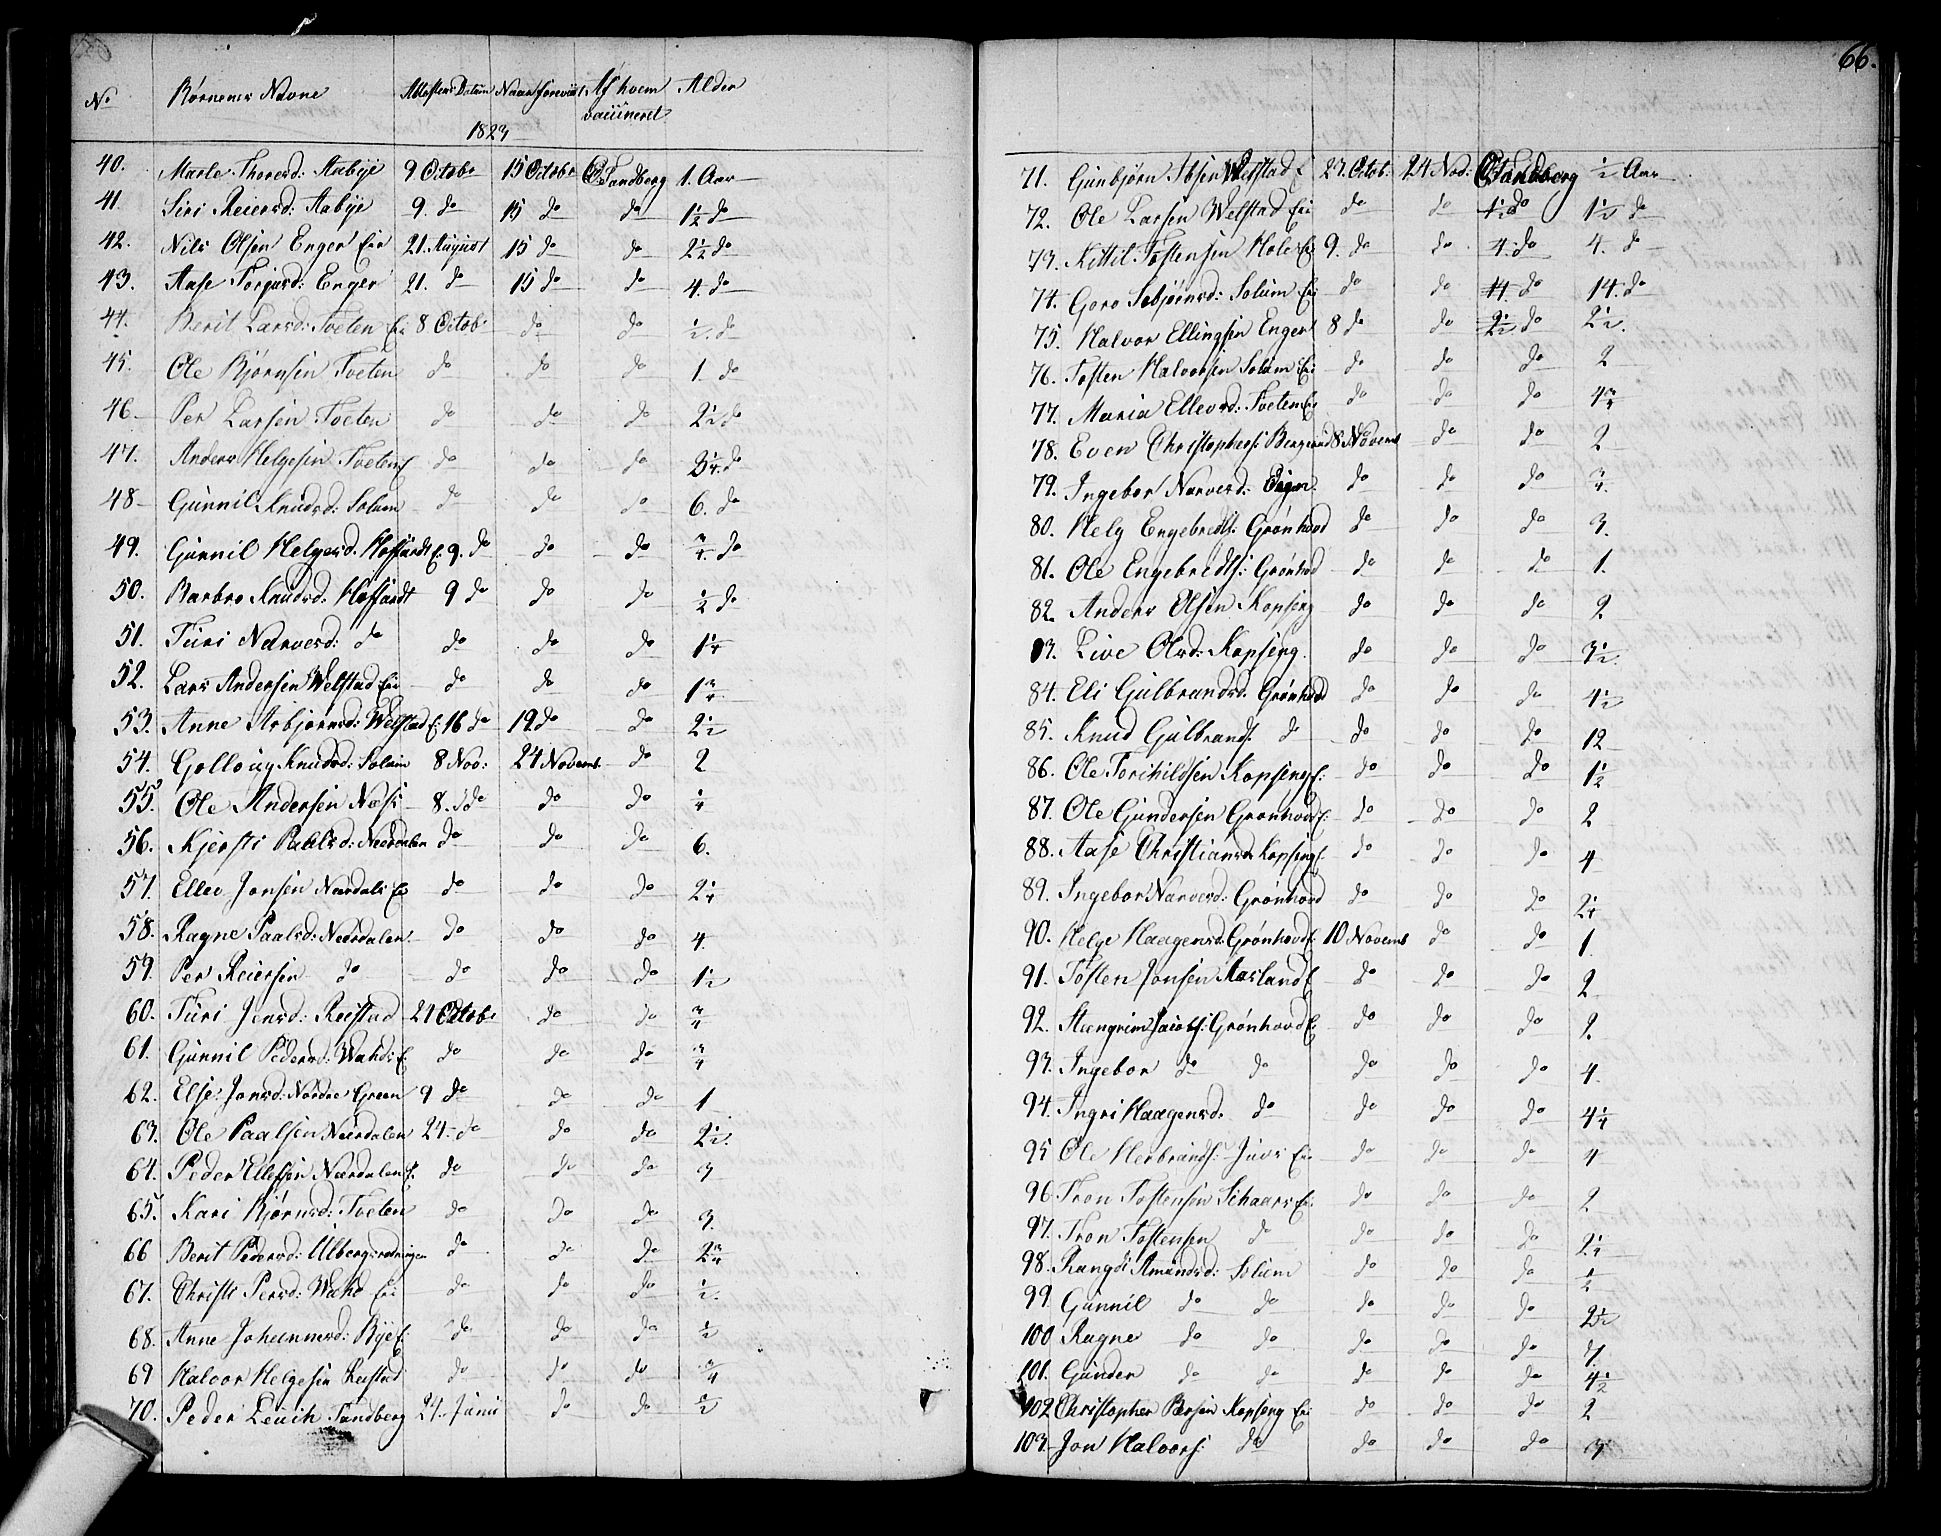 No Børnenes Navne Attestens Datum Naar forevist Af hvem vaccineret Alder
1823
40. Marte Thoresd: Aabye 9 Octobr 15 Octobr O Sandberg 1. Aar
41. Siri Reiersd: Aabye 9. do 15 do do 1 1/2 do
42. Nils Olsen Enger Eie 21. August 15 do do 2 1/2 do
43. Aase Torgersd: Enger 21. do 15 do do 4. do
44. Berit Larsd: Tveten Ei 8 Octob: do do 1/2. do
45. Ole Bjørnsen Tveten do do do 1. do
46 Per Larsen Tveten do do do 2 1/2 do
47. Anders Helgesen Tveten E do do do 3 1/4. do
48 Gunnil Knudsd: Solum do do do 6. do
49. Gunnil Helgesd. Hoffardt E. 9. do do do 3/4. do
50. Barbro Knudsd. Hoffardt 9 do do do 1/2 do
51. Turi Narvesd: do do do do 1 1/4
52. Lars Andersen Welstad Eie do do do 1 3/4
53. Anne Asbjørnsd: Welstad E: 16 do 19. do do 2 1/2
54. Gollaug Knudsd: Solum 8 Nov: 24 Novemb. do 2
55. Ole Andersen Næss 8. do do do 1/4
56. Kjersti Paalsd: Neerdalen do do do 6.
57. Ellev Jonsen Neerdals Ei do do do 2 1/4
58. Ragne Paalsd: Neerdalen. do do do 4.
59. Per Reiersen do do do do 1 1/2
60. Turi Jensd: Rustad 24 Octobr do do 3/4
61. Gunnil Pedersd: Wahds E. do do do 3/4
62. Else Jonsd: Nordre Green 9 do do do 1
63. Ole Paalsen Neerdalen 24. do do do 2 1/2.
64. Peder Ellefsen Neerdalen E. do do do 3
65. Kari Bjørnsd: Tveten do do do 3.
66 Berit Pedersd: Ulbergsrødningen do do do 2 3/4
67. Christi Persd: Wahd Ei: do do do 1/2.
68. Anne Johannesd: Bye E: do do do 1/2
69 Halvor Helgesen Rustad do do do 3/4
70. Peder Leuich Sandberg 24. Junii do do 1/2
66.
71. Gunbjørn Ibsen Welstad E 27. Octob: 24 Nov: O Sandberg 1/2 Aar
72. Ole Larsen Welstad Ei: do do 1 1/2 do 1 1/2 do
73. Kittil Tostensen Hole Ei 9. do do 4. do 4. do
74. Goro Sebjørnsd: Solum Ei: do do 14 do 14. do
75. Halvor Ellingsen Enger 8 do do 2 1/2 do 2 1/2.
76. Tosten Halvorsen Solum Ei: do do do 2
77. Maria Ellevsd: Tveten Ei do do do 4 3/4
78. Even Christophers: Bergsrud 8 Novemb do do 2
79. Ingebor Narvesd: do do do 3/4.
80. Helg Engebredts: Grønhovd do do do 3.
81. Ole Engebredts: Grønhod do do do 1.
82. Anders Olsen Kopseng do do do 2
83. Live Olsd: Kopseng. do do do 3 1/2.
84. Eli Gulbrandsd. Grønhovd do do do 4 1/2
85. Knud Gulbrands. do do do do 12
86. Ole Torchildsen Kopseng E: do do do 1 1/2
87. Ole Gundersen Grønhovd E: do do do 2
88. Aase Christiansd. Kopseng E. do do do 4
89. Ingebor Narvesd: Grønhovd do do do 2 1/4
90. Helge Haagensd: Grønhovd E: 10 Novemb do do 1.
91. Tosten Jonsen Aasland E do do do 2
92. Steengrim Jacobs: Grønhovd E do do do 2.
93. Ingebor do do do do do 4
94. Ingri Haagensd. do do do do 4 1/4
95 Ole Herbrands: Juvs Eie do do do 4
96. Tron Tostensen Schaars Ei: do do do 2
97. Tron Tostensen do do do do 2 1/4
98. Rangdi Amundsd: Solum do do do 1/2
99 Gunnil do do do do do 2 1/2
100. Ragne do do do do do 7.
101. Gunder do do do do do 4 1/2
102 Christopher Persen Kopseng Ei do do do 2
103. Jon Halvors: do do do do 3